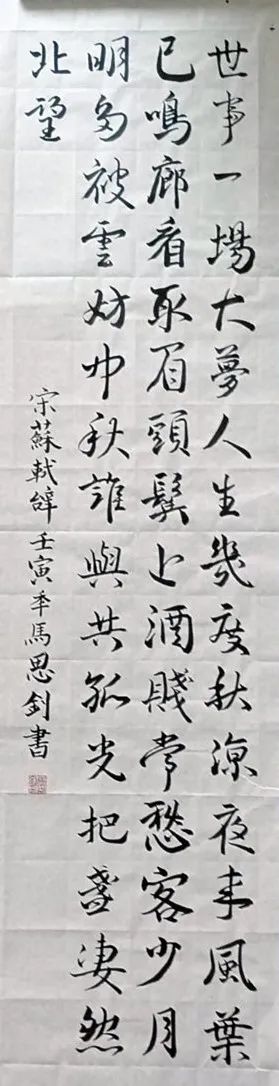 世事一場大夢人生幾度秋涼夜来風葉
已鳴廊看取眉頭鬓上酒賤常愁客少月
明多被雲妨中秋誰與共孤光把盞凄然
北望
宋蘇軾辭壬寅年馬思釗書